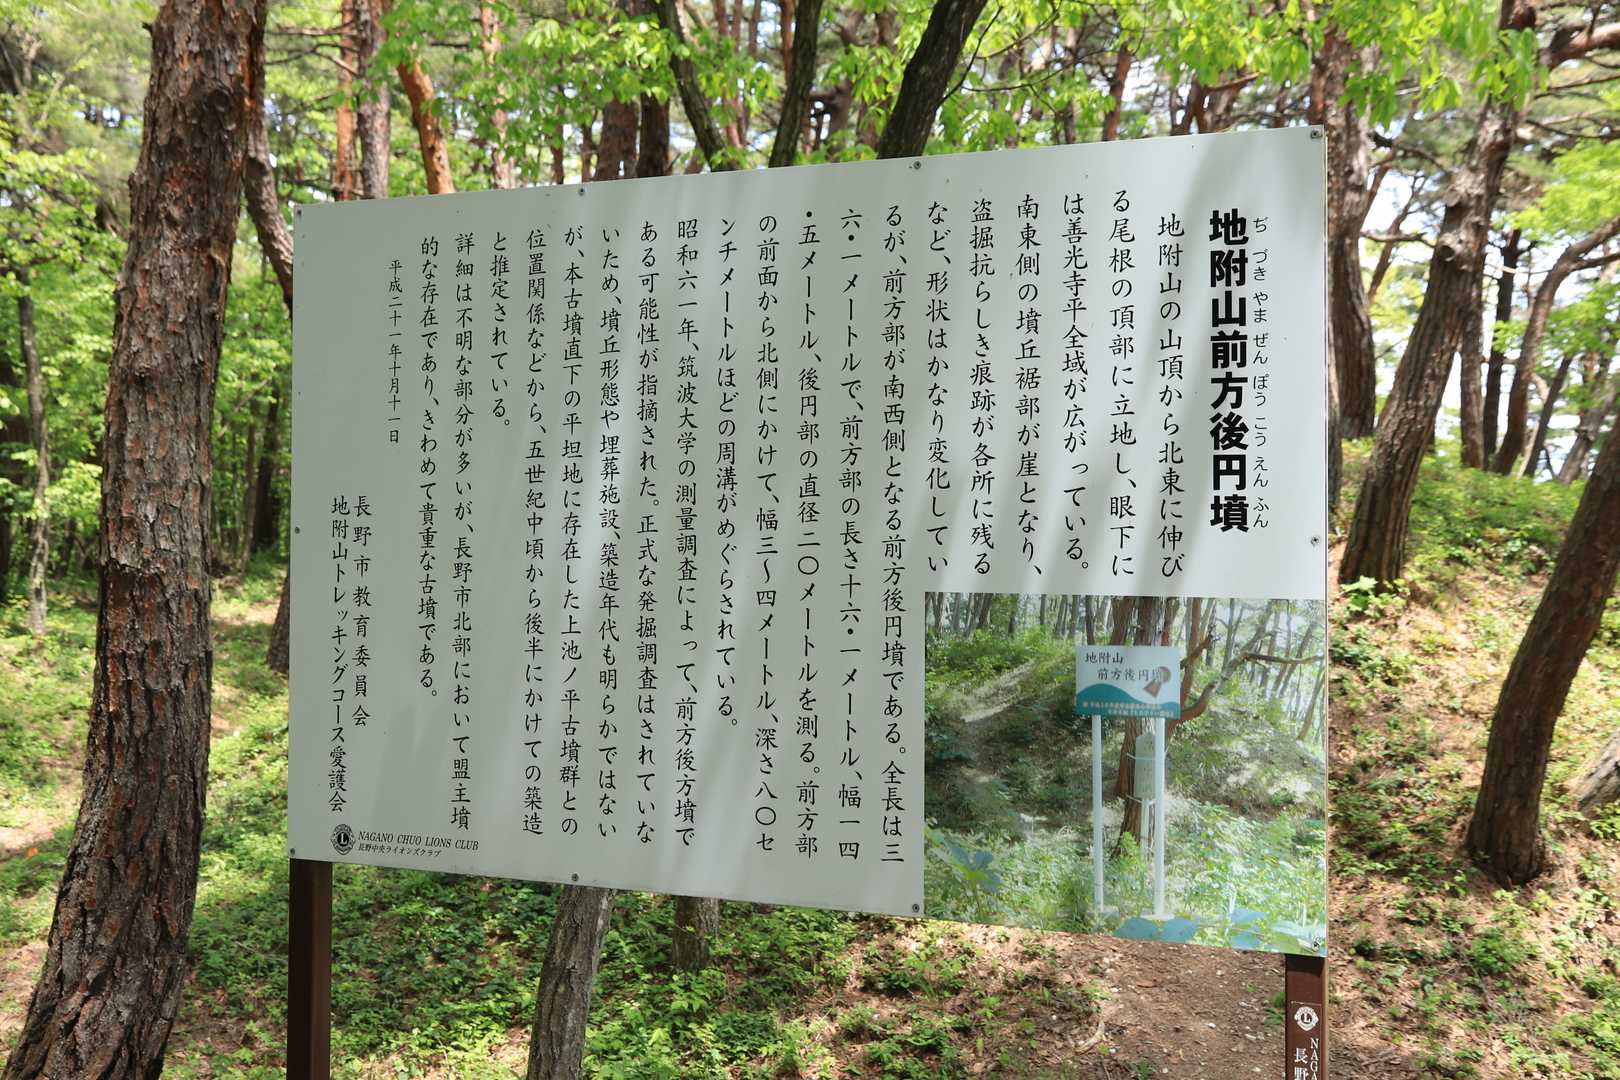 地附山前方後円墳
ぢづきやまぜんぽうこうえんふん
地附山の山頂から北東に伸び
る尾根の頂部に立地し、眼下に
は善光寺平全域が広がっている。
南東側の墳丘裾部が崖となり、
盗掘抗らしき痕跡が各所に残る
など、形状はかなり変化してい
るが、前方部が南西側となる前方後円墳である。全長は三
六・一メートルで、前方部の長さ十六・一メートル、幅一四
・五メートル、後円部の直径二〇メートルを測る。前方部
の前面から北側にかけて、幅三〜四メートル、深さ八〇セ
ンチメートルほどの周溝がめぐらされている。
昭和六一年、筑波大学の測量調査によって、前方後方墳で
ある可能性が指摘された。正式な発掘調査はされていな
いため、墳丘形態や埋葬施設、築造年代も明らかではない
が、本古墳直下の平坦地に存在した上池ノ平古墳群との
位置関係などから、五世紀中頃から後半にかけての築造
と推定されている。
詳細は不明な部分が多いが、長野市北部において盟主墳
的な存在であり、きわめて貴重な古墳である。
平成二十一年十月十一日
長野市教育委員会
地附山トレッキングコース愛護会
NAGANO CHUO LIONS CLUB
長野中央ライオンズクラブ
地附山
前方後円墳
L
NAGA
長野